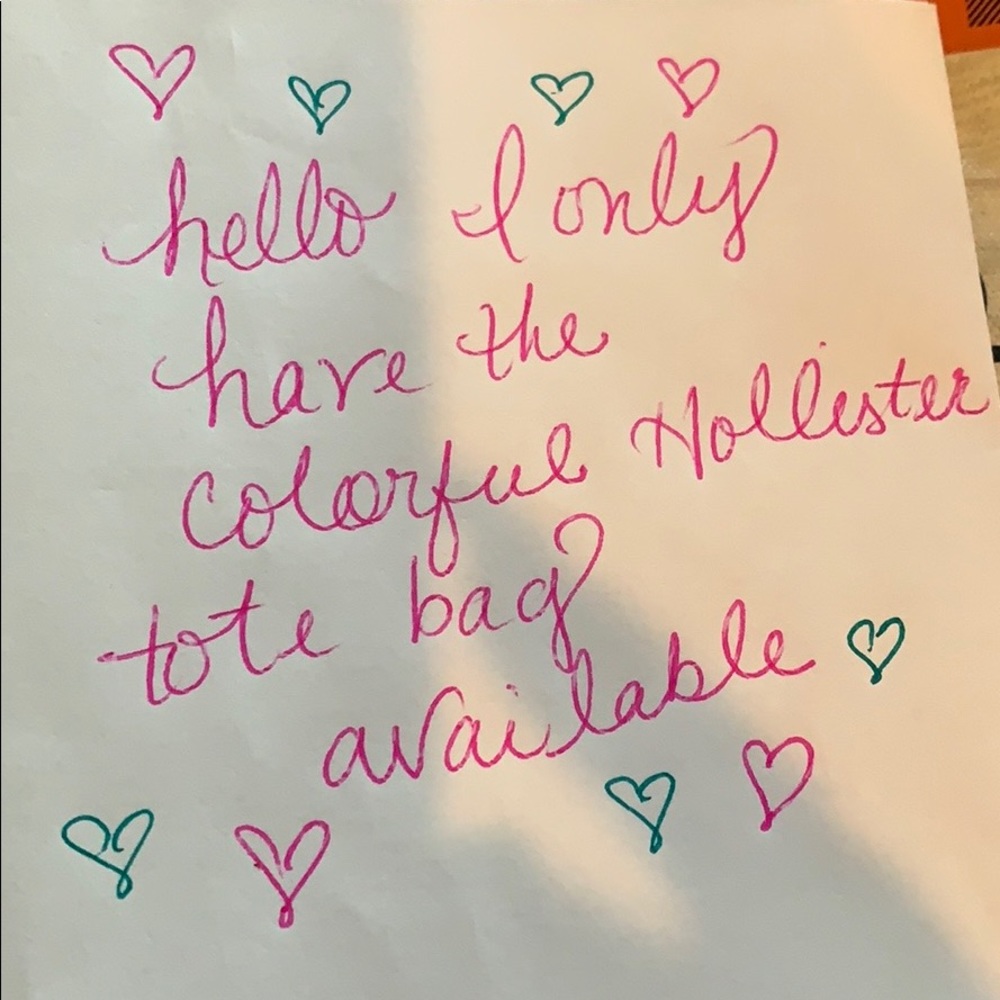 hello I only
have the
colorful Hollister
tote bag
available